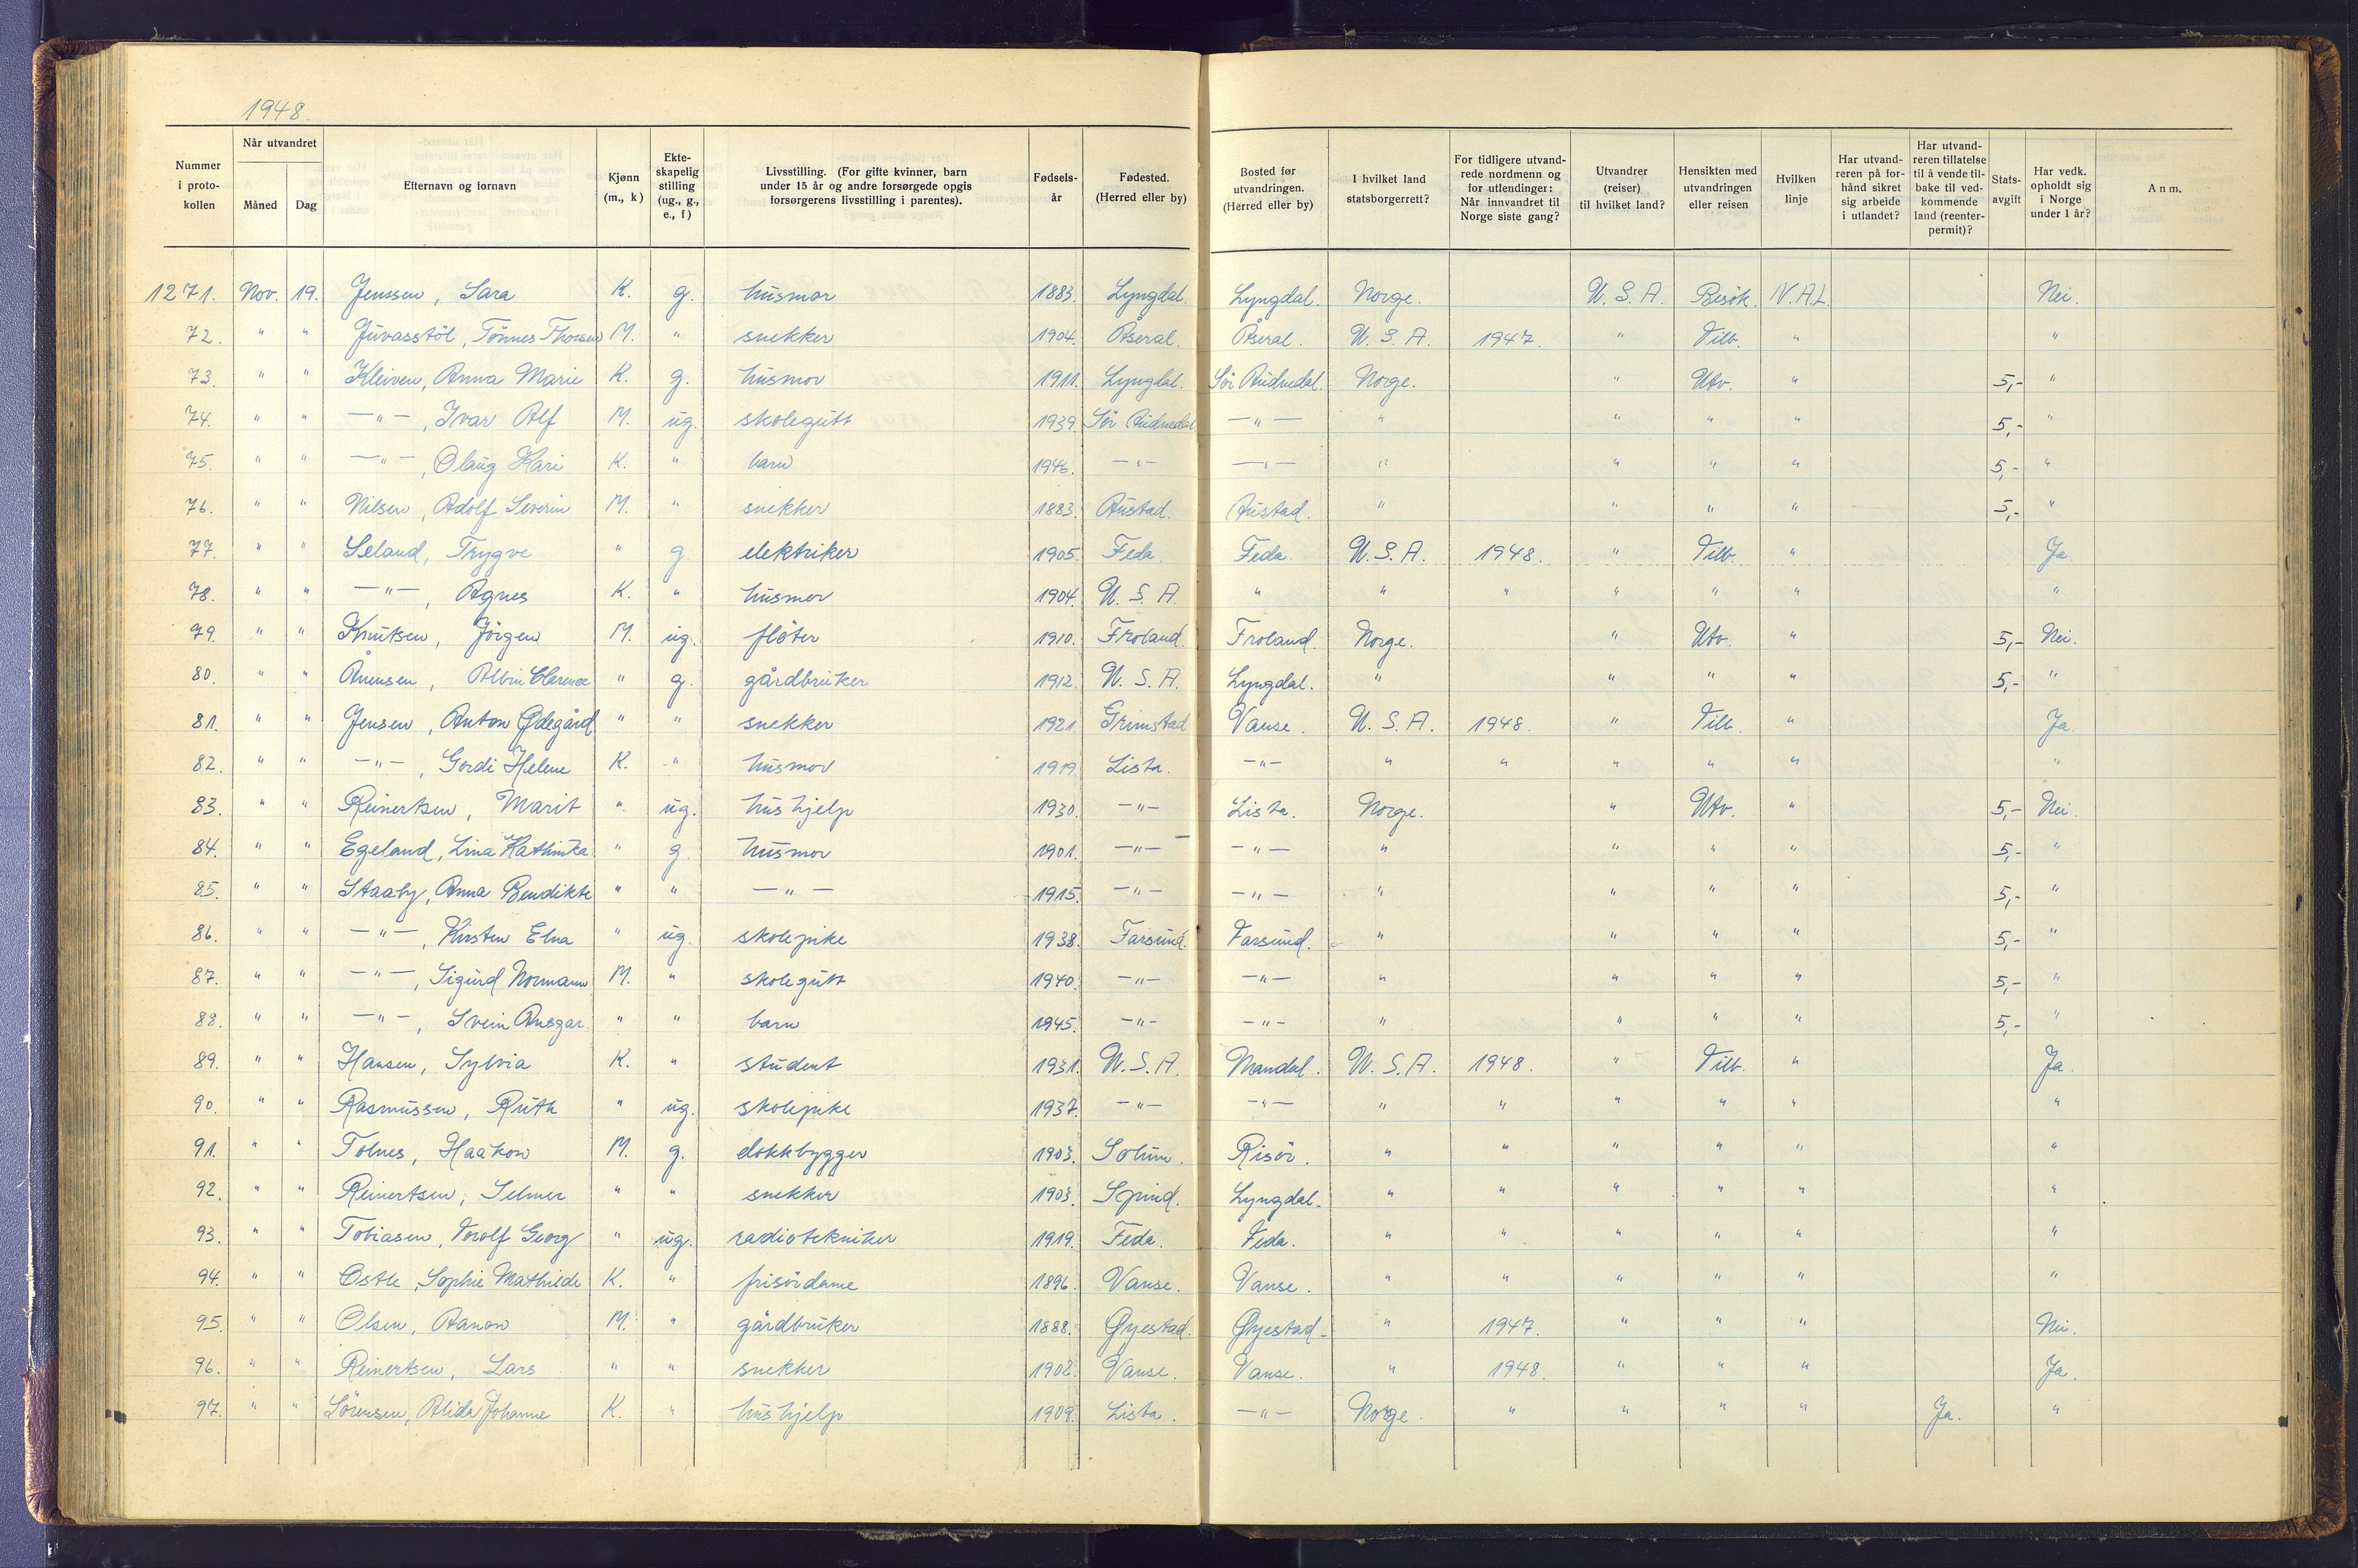 1948.
Nummer i protokollen | Når utvandret Måned | Dag | Efternavn og fornavn | Kjønn (m., k) | Ekteskapelig stilling (ug., g., e., f) | Livsstilling. (For gifte kvinner, barn under 15 år og andre forsørgede opgis forsørgerens livsstilling i parentes). | Fødselsår | Fødested. (Herred eller by) | Bosted før utvandringen. (Herred eller by) | I hvilket land statsborgerrett? | For tidligere utvandrede nordmenn og for utlendinger: Når innvandret til Norge siste gang? | Utvandrer (reiser) til hvilket land? | Hensikten med utvandringen eller reisen | Hvilken linje | Har utvandreren på forhånd sikret sig arbeide i utlandet? | Har utvandreren tillatelse til å vende tilbake til vedkommende land (reenterpermit)? | Statsavgift | Har vedk. opholdt sig i Norge under 1 år? | Anm.
1271. Nov. 19. Jenssen, Sara K. g. husmor 1883. Lyngdal. Lyngdal. Norge. U.S.A. Besök. N.A.L. Nei.
72. " " Juvasstöl, Tönnes Thorsen M. " snekker 1904. Åseral. Åseral. U.S.A. 1947. " Tilb. " "
73. " " Kleiven, Anna Marie K. g. husmor 1911. Lyngdal. Sör Audnedal. Norge. " Utv. " 5,- "
74. " " —"—, Ivar Alf M. ug. skolegutt 1939. Sör Audnedal —"— " " " " 5,- "
75. " " —"—, Olaug Kari K. " barn 1946. —"— —"— " " " " 5,- "
76. " " Nilsen, Adolf Severin M. " snekker 1883. Austad. Austad. " " " " 5,- "
77. " " Seland, Trygve " g. elektriker 1905. Feda. Feda. U.S.A. 1948. " Tilb. " Ja.
78. " " —"—, Agnes K. " husmor 1904. U.S.A. " " " " " " "
79. " " Knutsen, Jörgen M. ug. flöter 1910. Froland. Froland. Norge. " Utv. " 5,- Nei.
80. " " Ånensen, Albin Clarence " g. gårdbruker 1912. U.S.A. Lyngdal. " " " " 5,- "
81. " " Jensen, Anton Ødegård " " snekker 1921. Grimstad Vanse. U.S.A. 1948. " Tilb. " Ja.
82. " " —"—, Gordi Helene K. " husmor 1919. Lista. —"— " " " " " "
83. " " Reinertsen, Marit " ug. hushjelp 1930. —"— Lista. Norge. " Utv. " 5,- Nei.
84. " " Egeland, Lina Kathinka " g. husmor 1901. —"— —"— " " " " 5,- "
85. " " Staaby, Anna Bendikte " " —"— 1915. —"— —"— " " " " 5,- "
86. " " —"—, Kirsten Elna " ug. skolepike 1938. Farsund. Farsund. " " " " 5,- "
87. " " —"—, Sigurd Normann M. " skolegutt 1940. —"— —"— " " " " 5,- "
88. " " —"—, Svein Ansgar. " " barn 1945. —"— —"— " " " " 5,- "
89. " " Hansen, Sylvia K. " student 1931. U.S.A. Mandal. U.S.A. 1948. " Tilb. " Ja.
90. " " Rasmussen, Ruth " ug. skolepike 1937. —"— —"— " " " " " "
91. " " Tolnes, Haakon M. g. dokkbygger 1903. Solum. Risör. " " " " " "
92. " " Reinertsen, Selmer " " snekker 1903. Spind. Lyngdal. " " " " " "
93. " " Tobiasen, Torolf Georg " ug. radiotekniker 1919. Feda. Feda. " " " " " "
94. " " Ostle, Sophie Mathilde K. " frisördame 1896. Vanse. Vanse. " " " " " "
95. " " Olsen, Aanon M. " gårdbruker 1888. Gyestad. Gyestad. " 1947. " " " Nei.
96. " " Reinertsen, Lars " " snekker 1902. Vanse. Vanse. " 1948. " " " Ja.
97. " " Sörensen, Alida Johanne K. " hushjelp 1909. Lista. —"— Norge. " " " " Ja. "